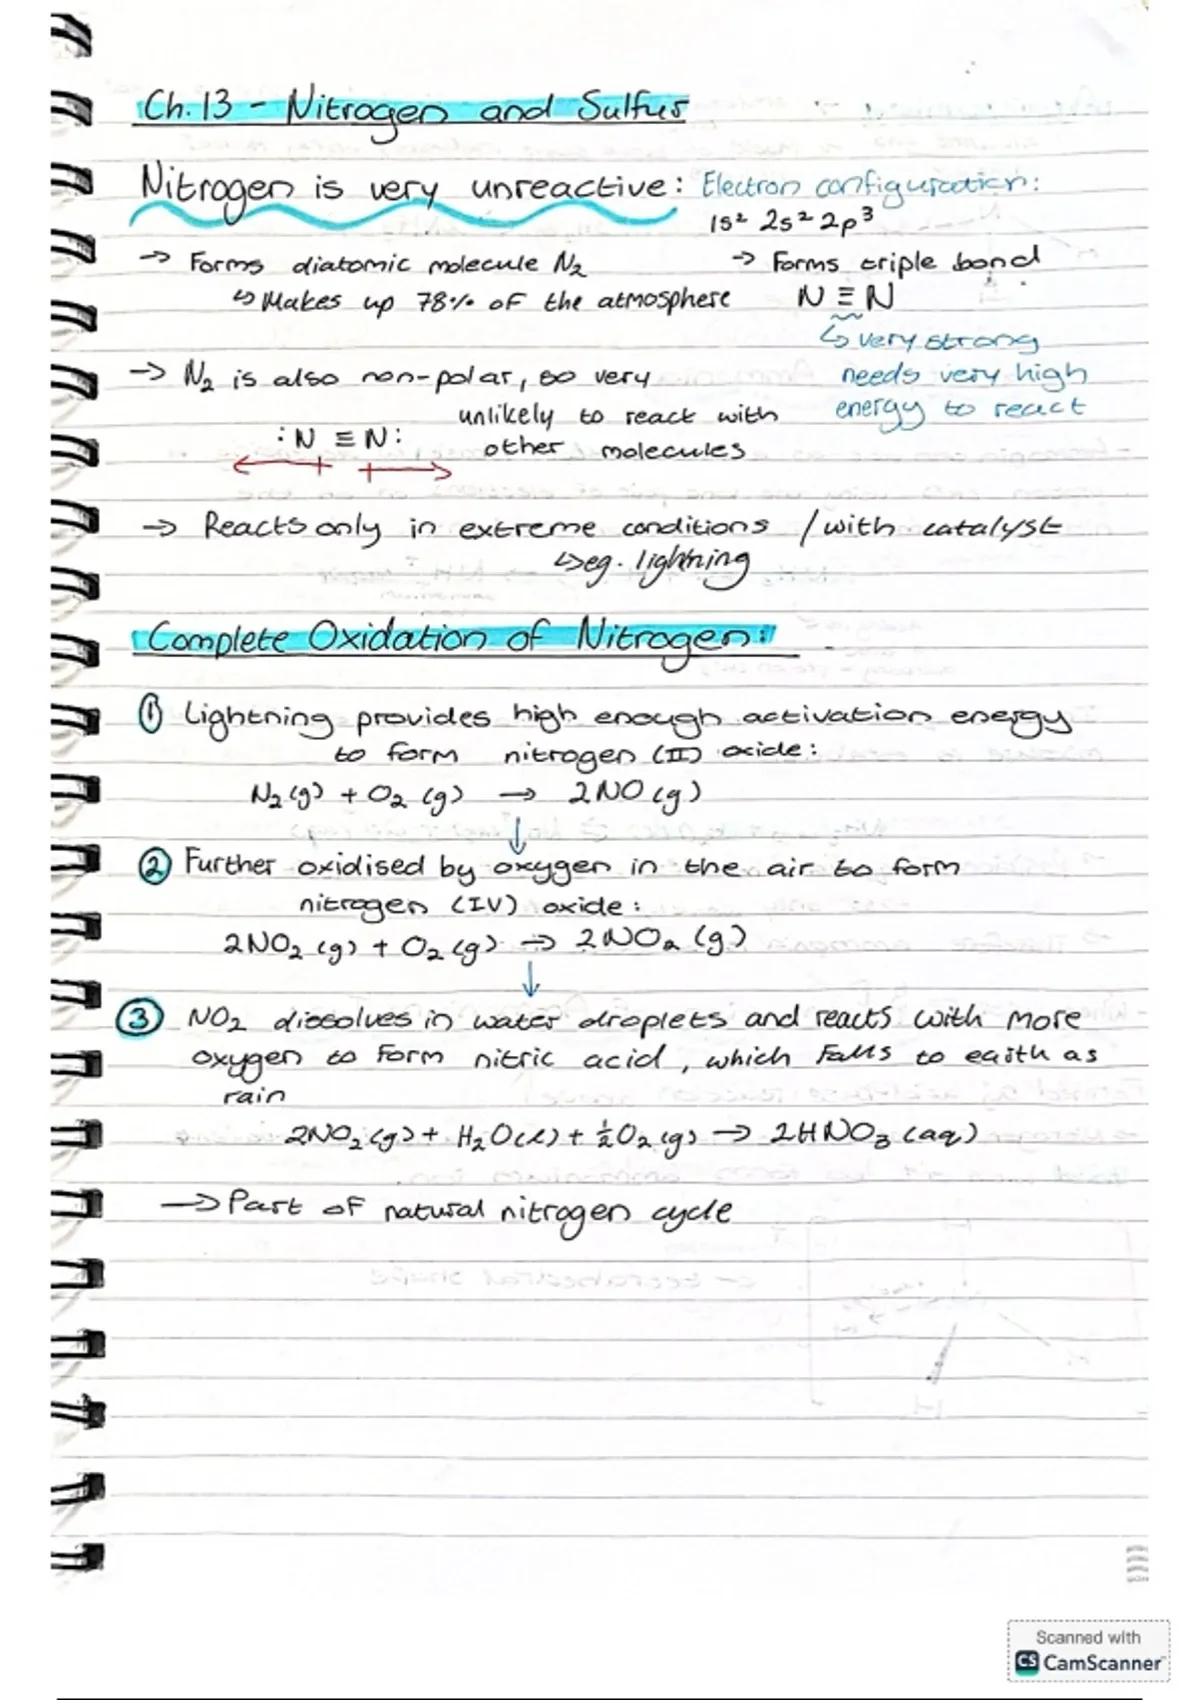 Ch. 13 - Nitrogen and Sulfur
Nitrogen is very unreactive: Electron configuration:
1s² 2s² 2p³
→ Forms diatomic molecule N₂ → Forms triple bond
↳ Makes up 78% of the atmosphere N ≡ N
↳ very strong
→ N₂ is also non-polar, so very needs very high
unlikely to react with energy to react
:N ≡ N: other molecules
→ Reacts only in extreme conditions / with catalyst
↳ eg. lightning
Complete Oxidation of Nitrogen:
① Lightning provides high enough activation energy
to form nitrogen (II) oxide:
N₂ (g) + O₂ (g) → 2NO (g)
↓
② Further oxidised by oxygen in the air to form
nitrogen (IV) oxide:
2NO₂ (g) + O₂ (g) → 2NO₂ (g)
↓
③ NO₂ dissolves in water droplets and reacts with more
oxygen to form nitric acid, which falls to earth as
rain
2NO₂ (g) + H₂O (l) + ½O₂ (g) → 2HNO₃ (aq)
→ Part of natural nitrogen cycle
Scanned with
CS CamScanner